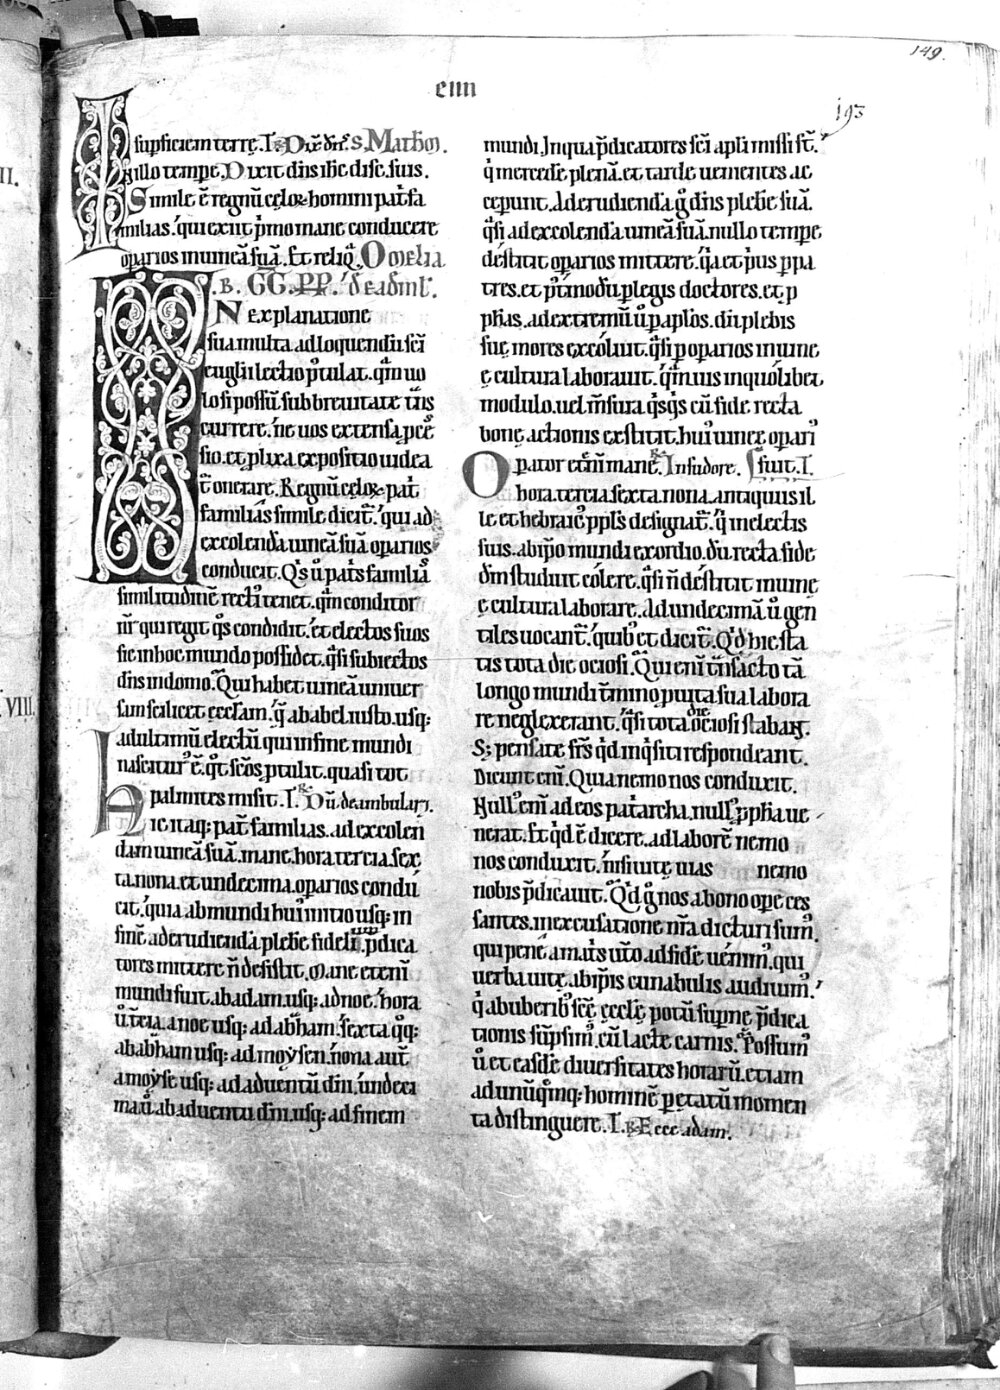 149.
193
superficiem terrę. I. R. Dix̄ dn̄s. S. Mathm̄.
In illo tempr̄e. Dixit dn̄s ihc̄ disc̄. suis.
Simile ē regnū cęloꝝ homini patrī fa
milias. qui exiit p̄mo mane conducere
oparios in uineā suā. Et reliq̄. Omelia
.B. GG. PP. de ead̄ml̄.
IN explanatione
sua multa ad loquendū sc̄i
euglii lectio p̄tulat. quā uo
lo si possū sub breuitate tn̄s
currere. ne uos extensa pcē
sio. et plixa expositio uidea
t̄ onerare. Regnū cęloꝝ pat̄
familias simile dicit̄. qui ad
excolendā uineā suā oparios
conducit. Qs ū patris familiā
similitudinē recti tenet. quā conditor
nr̄ qui regit qs condidit. et electos suos
sic in hoc mundo possidet. q̄si subiectos
dn̄s in domo. Qui habet uineā uniuer
sam scilicet ęccl̄am. q̄ ab abel iusto usq;
ad ultimū electū qui in fine mundi
nasciturꝰ ē. qt̄ sc̄os ptulit. quasi tot
palmites misit. I. R. Dū deambularꝫ.
Hic itaq; pat̄ familias. ad excolen
dam uineā suā. mane. hora tercia. sex
ta. nona. et undecima. oparios condu
cit. quia ab mundi huiꝰ initio usq; in
finē. ad erudiendā plebē fideliū. p̄dica
tores mittere n̄ destitit. Mane etenī
mundi fuit. ab adam. usq; ad noe. hora
ū t̄cia. a noe usq; ad abhām. sexta q̄q;
ab abhām usq; ad moysen. nona aut̄
a moyse usq; ad aduentū dn̄i. undeci
ma ū ab aduentu dn̄i. usq; ad finem
mundi. In qua p̄dicatores sc̄i apl̄i missi st̄.
q̄ mercedē plenā. et tarde uenientes ac
ceperunt. Ad erudiendā ḡ dn̄s plebē suā.
q̄si ad excolendā uineā suā. nullo tempe
destitit oparios mittere. q̄a et pꝰus p pa
tres. et p̄tmodū p legis doctores. et p
pphas. ad extremū ū p aplos. dū plebis
suę. mores excoluit. q̄si p oparios in uine
ę cultura laborauit. quāuis in quolibet
modulo. uel m̄sura q̄sq̄s cū fide recta
bonę actionis exstitit. huiꝰ uineę opariꝰ
Opator etn̄im mane. R. In sudore. fuit. I.
hora. tercia. sexta. nona. antiquus il
le et hebraicꝰ ppl̄s designat̄. q̄ in electis
suis. ab ip̄o mundi exordio. dū recta fide
dm̄ studuit colere. q̄si n̄ destitit in uine
ę cultura laborare. Ad undecimā ū gen
tiles uocant̄. quibꝰ et dicit̄. Qd hic sta
tis tota die ociosi. Qui enī t̄nsacto tā
longo mundi t̄mino p uita sua labora
re neglexerant. q̄si tota die ociosi stabant.
S; pensate fr̄s qd inq̄siti respondeant.
Dicunt enī. Quia nemo nos conduxit.
Nullꝰ enī ad eos patarcha. nullꝰ ppha ue
nerat. Et qd ē dicere. ad laborē nemo
nos conduxit. n̄si uitę uias nemo
nobis p̄dicauit. Qd ḡ nos a bono ope ces
santes. in excusatione nr̄a dicturi sumꝰ.
qui penē a matris utō ad fidē uenimꝰ. qui
uerba uitę ab ip̄is cunabulis audiuimꝰ.
q̄ ab uberibꝰ sc̄ę ęccl̄ę potū supnę p̄dica
tionis sūpsimꝰ. cū lacte carnis. Possumꝰ
ū et easdē diuersitates horarū. etiam
ad unū quēq; hominē p etatū momen
ta distinguere. I. R. Ecce adam.
VIII.
II.